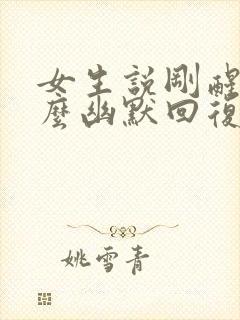 女生説剛醒
麼幽默回復
姚雪青